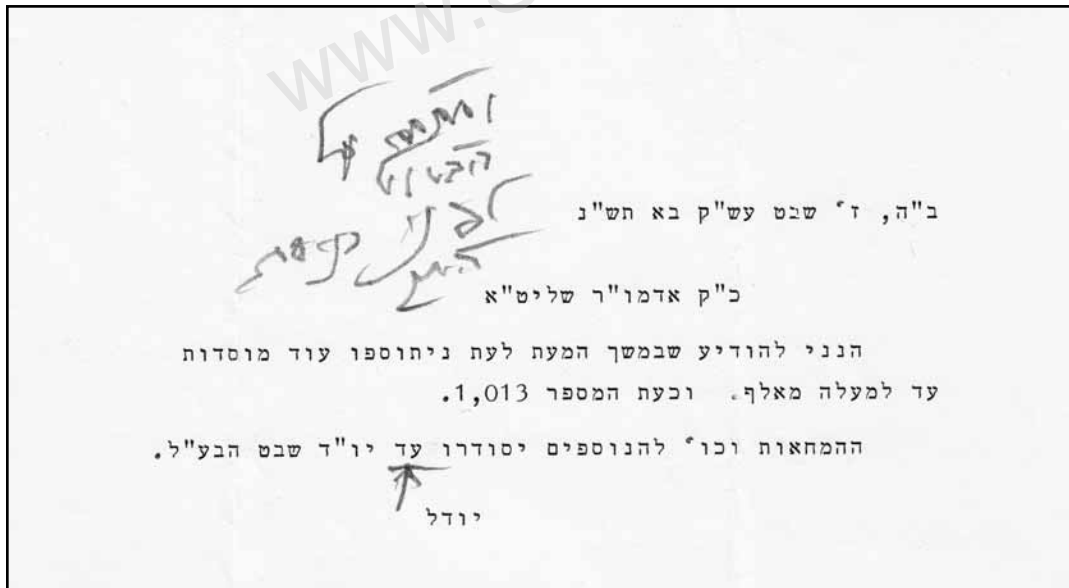 ב"ה, ז' שבט עש"ק בא תש"נ
כ"ק אדמו"ר שליט"א
הנני להודיע שבמשך המעת לעת ניתוספו עוד מוסדות
עד למעלה מאלף. וכעת המספר 1,013.
ההמחאות וכו' להנוספים יסודרו עד יו"ד שבט הבע"ל.
יודל